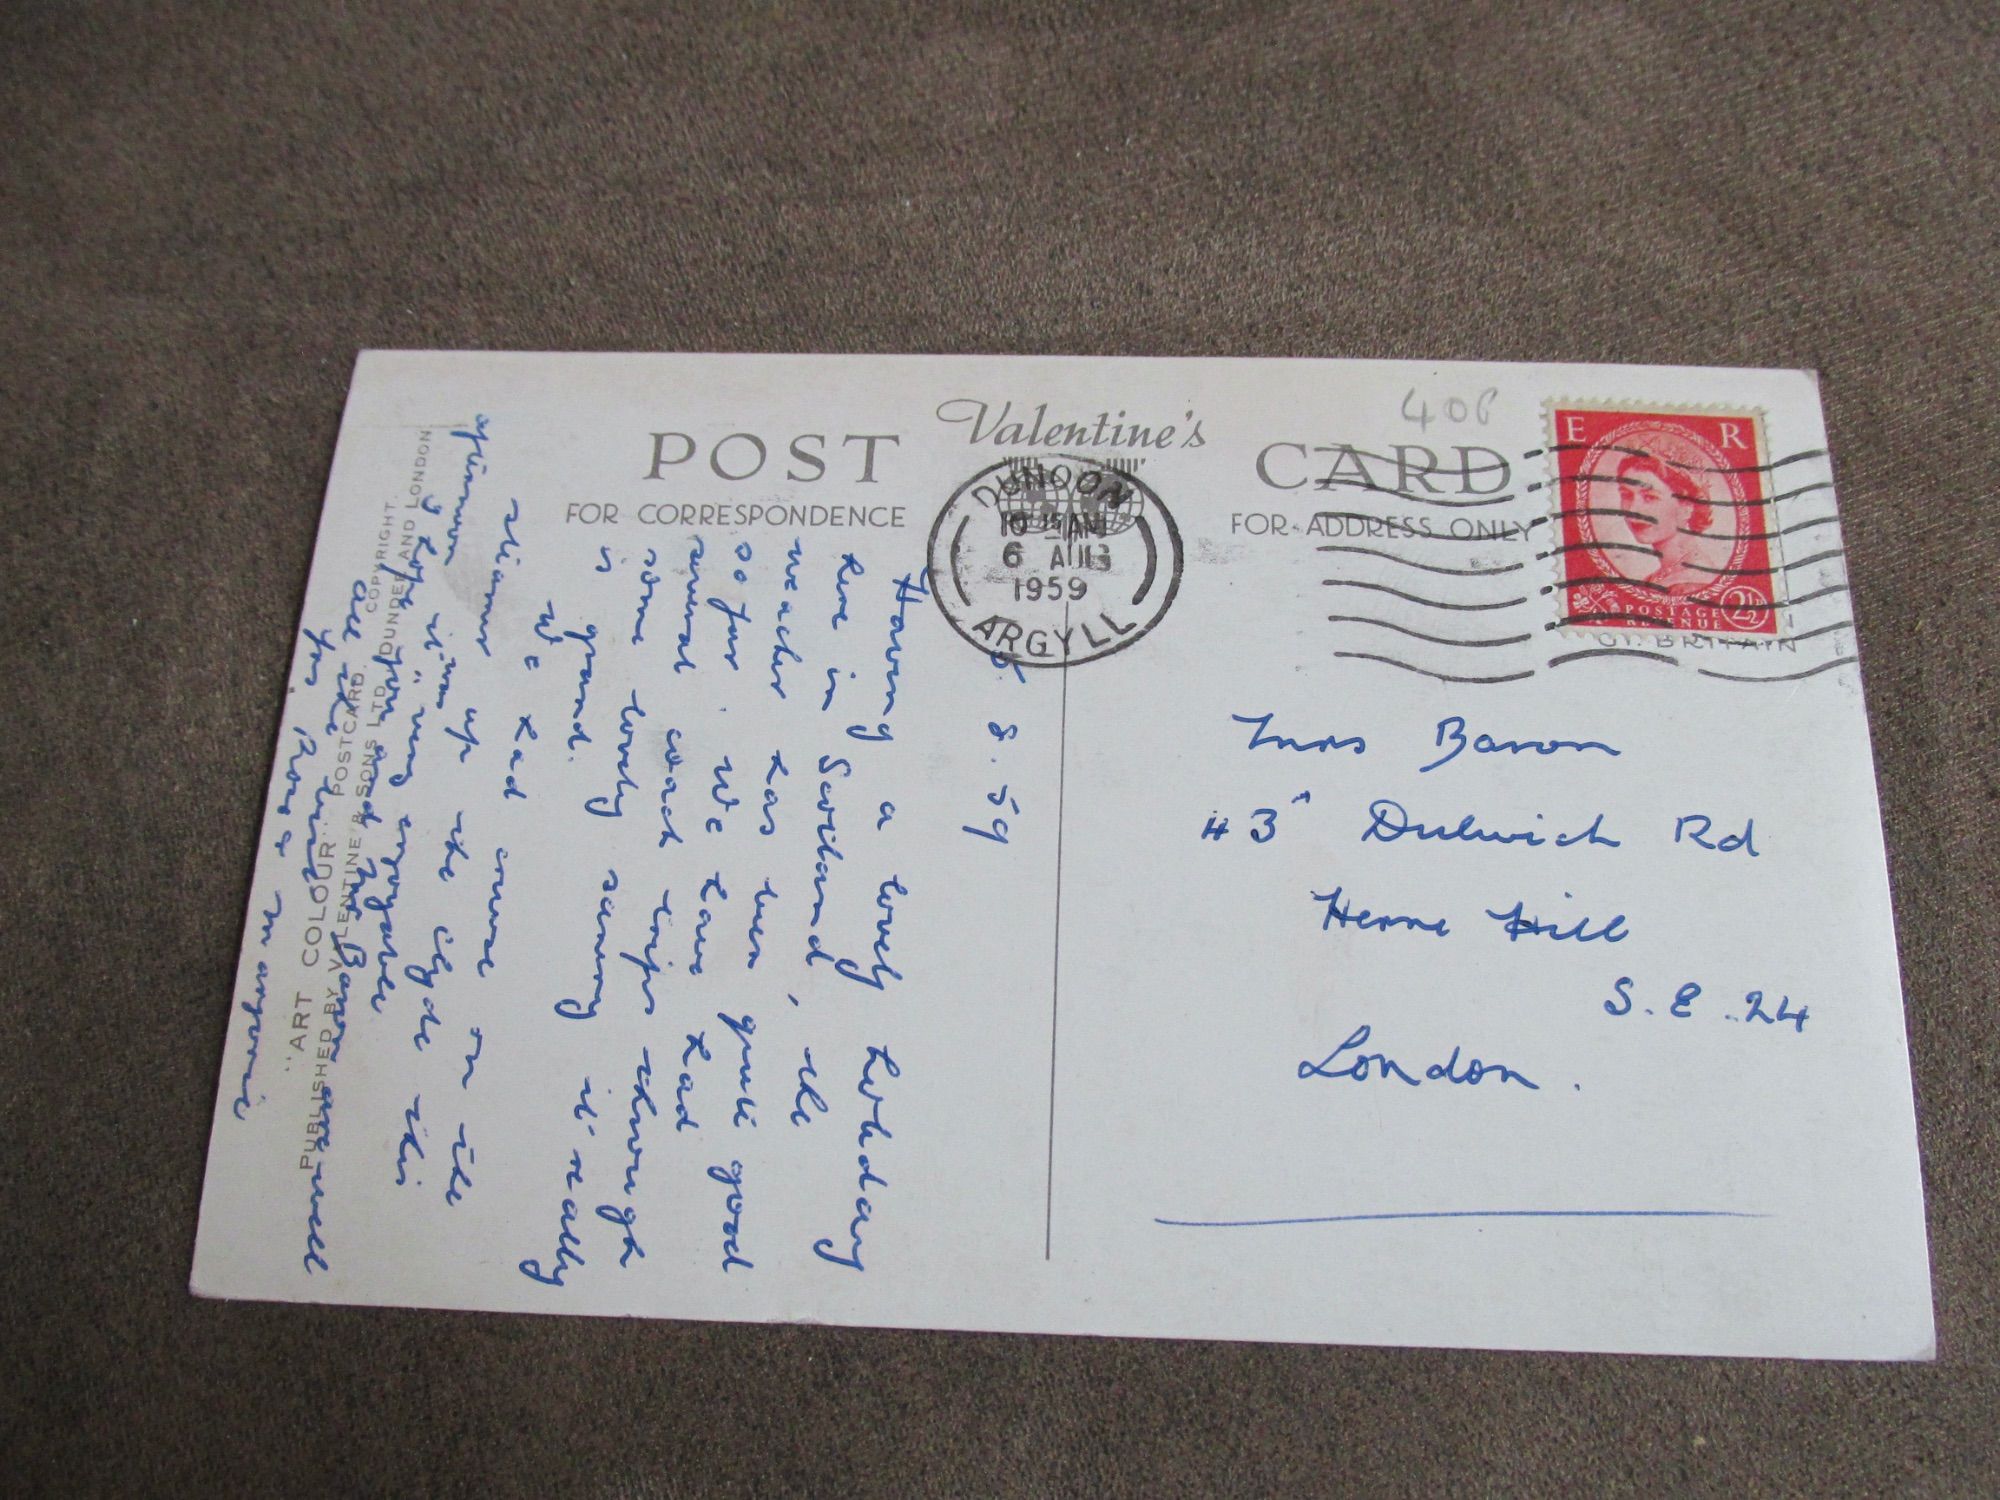 POST
Valentine's
CARD
406
FOR CORRESPONDENCE
FOR ADDRESS ONLY
DUNOON
10 15 AM
6 AUG
1959
ARGYLL
E R
POSTAGE
REVENUE
2½
GT. BRITAIN
8. 59
Having a lovely holiday
here in Scotland, the
weather has been quite good
so far. We have had
several coach trips through
some lovely scenery it really
is grand.
We had cruise on the
steamer up the Clyde this
afternoon it was very enjoyable
I hope you and Mr Baron are well
All the best
Rose & Marjorie
Mrs Baron
43 Dulwich Rd
Herne Hill
S.E. 24
London.
"ART COLOUR" POSTCARD. COPYRIGHT.
PUBLISHED BY VALENTINE & SONS LTD. DUNDEE AND LONDON